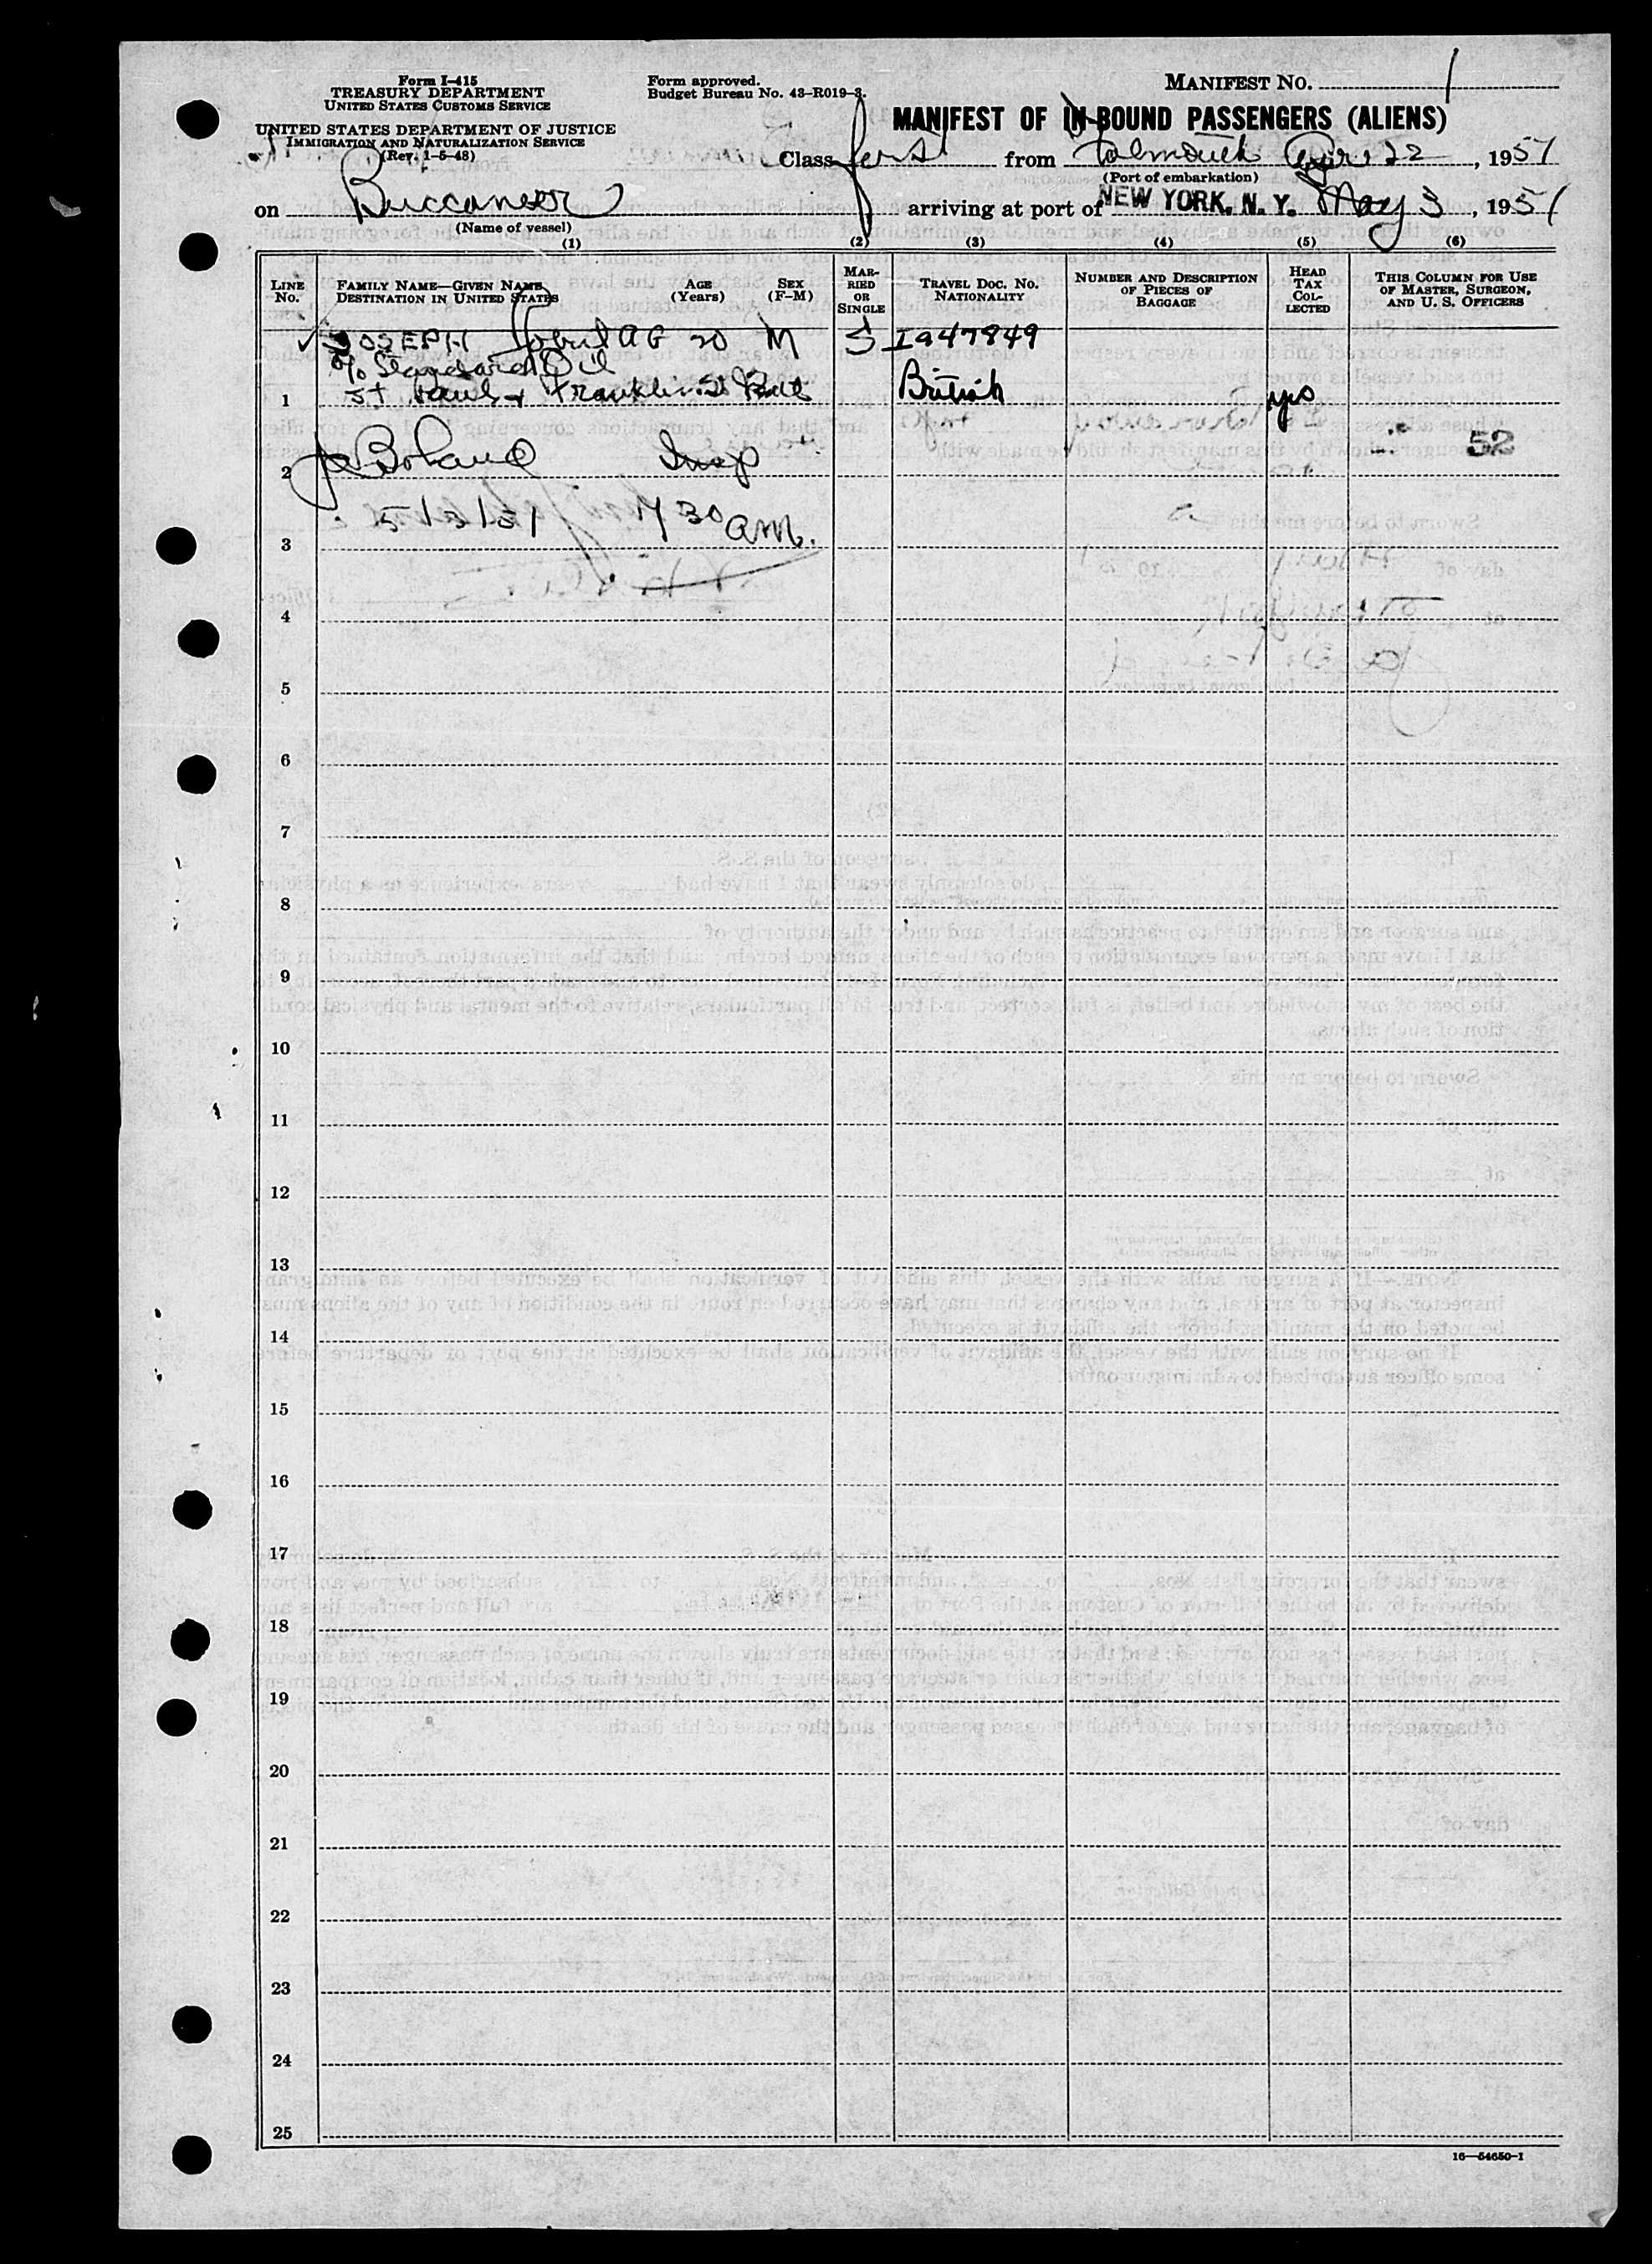 Form I-415
TREASURY DEPARTMENT
UNITED STATES CUSTOMS SERVICE
UNITED STATES DEPARTMENT OF JUSTICE
IMMIGRATION AND NATURALIZATION SERVICE
(Rev. 1-5-48)
Form approved.
Budget Bureau No. 43-R019-3.
MANIFEST NO. 1
MANIFEST OF IN-BOUND PASSENGERS (ALIENS)
Class first from Falmouth Apr 22, 1951
(Port of embarkation)
on Buccaneer arriving at port of NEW YORK, N. Y. May 3, 1951
(Name of vessel)
(1) (2) (3) (4) (5) (6)
LINE NO. FAMILY NAME—GIVEN NAME DESTINATION IN UNITED STATES AGE (Years) SEX (F-M) MARRIED OR SINGLE TRAVEL DOC. NO. NATIONALITY NUMBER AND DESCRIPTION OF PIECES OF BAGGAGE HEAD TAX COLLECTED THIS COLUMN FOR USE OF MASTER, SURGEON, AND U. S. OFFICERS
JOSEPH AG 20 M S I947849
c/o Standard Oil
1 St Paul & Franklin St Balt British yes
2 Boland Insp 52
3 5/3/51 7 30 am.
4
5
6
7
8
9
10
11
12
13
14
15
16
17
18
19
20
21
22
23
24
25
16—54650-1